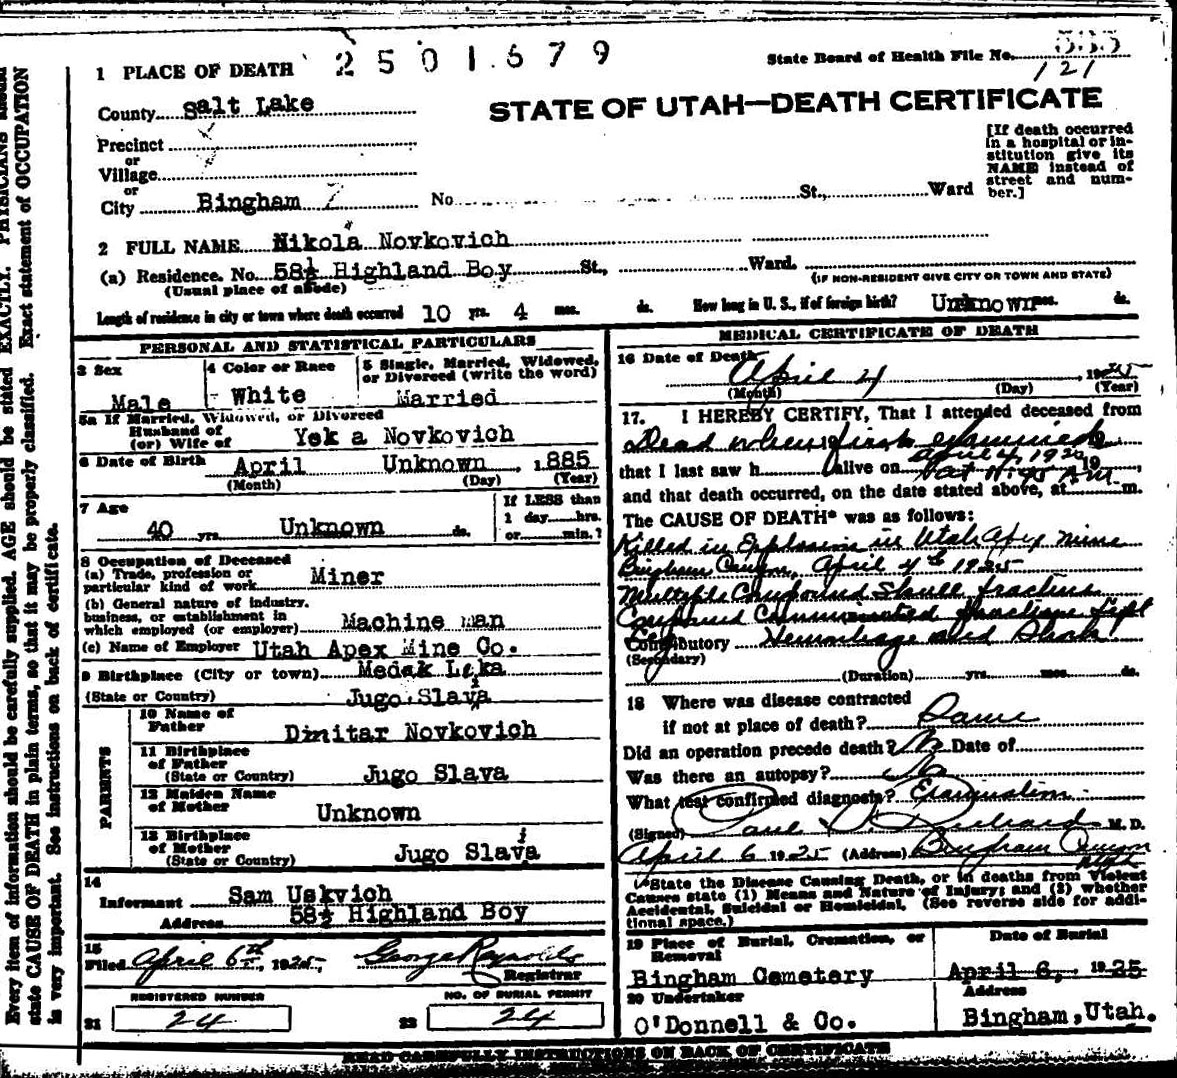 2501679
State Board of Health File No. 535
121
1 PLACE OF DEATH
County Salt Lake
STATE OF UTAH—DEATH CERTIFICATE
Precinct
or
Village
or
City Bingham No St., Ward
[If death occurred
in a hospital or in-
stitution give its
NAME instead of
street and num-
ber.]
2 FULL NAME Nikola Novkovich
(a) Residence. No. 58½ Highland Boy St., Ward.
(Usual place of abode)
(IF NON-RESIDENT GIVE CITY OR TOWN AND STATE)
Length of residence in city or town where death occurred 10 yrs. 4 mos. ds. How long in U. S., if of foreign birth? Unknown mos. ds.
PERSONAL AND STATISTICAL PARTICULARS
3 Sex
Male
4 Color or Race
White
5 Single, Married, Widowed,
or Divorced (write the word)
Married
5a If Married, Widowed, or Divorced
Husband of
(or) Wife of Yek a Novkovich
6 Date of Birth April Unknown, 1885
(Month) (Day) (Year)
7 Age
40 yrs. Unknown ds.
If LESS than
1 day hrs.
or min.?
8 Occupation of Deceased
(a) Trade, profession or
particular kind of work Miner
(b) General nature of industry,
business, or establishment in
which employed (or employer) Machine man
(c) Name of Employer Utah Apex Mine Co.
9 Birthplace (City or town) Medak Lika
(State or Country) Jugo Slavia
PARENTS
10 Name of
Father Dmitar Novkovich
11 Birthplace
of Father
(State or Country) Jugo Slava
12 Maiden Name
of Mother Unknown
13 Birthplace
of Mother
(State or Country) Jugo Slavia
14
Informant Sam Uskvich
Address 58½ Highland Boy
15
Filed April 6th, 1925, George Reynolds
Registrar
REGISTERED NUMBER
21 24
NO. OF BURIAL PERMIT
22 24
MEDICAL CERTIFICATE OF DEATH
16 Date of Death
April 4, 1925
(Month) (Day) (Year)
17. I HEREBY CERTIFY, That I attended deceased from
Dead when first examined
that I last saw h alive on April 4, 1925 19
and that death occurred, on the date stated above, at 11:45 AM m.
The CAUSE OF DEATH* was as follows:
Killed in Explosion in Utah Apex mine
Bingham Canyon, April 4th 1925
Multiple Compound Skull fracture
Compound Comminuted fracture
Contributory Hemorrhage and Shock
(Secondary)
(Duration) yrs. mos. ds.
18 Where was disease contracted
if not at place of death? Same
Did an operation precede death? No Date of
Was there an autopsy? No
What test confirmed diagnosis? Examination
(Signed) Paul S. Richards M. D.
April 6 1925 (Address) Bingham Canyon
Utah
*State the Disease Causing Death, or in deaths from Violent
Causes state (1) Means and Nature of Injury; and (2) whether
Accidental, Suicidal or Homicidal. (See reverse side for addi-
tional space.)
19 Place of Burial, Cremation, or
Removal
Bingham Cemetery
Date of Burial
April 6, 1925
20 Undertaker
O'Donnell & Co.
Address
Bingham, Utah.
READ CAREFULLY INSTRUCTIONS ON BACK OF CERTIFICATE
Every item of information should be carefully supplied. AGE should be stated EXACTLY. PHYSICIANS should
state CAUSE OF DEATH in plain terms, so that it may be properly classified. Exact statement of OCCUPATION
is very important. See instructions on back of certificate.